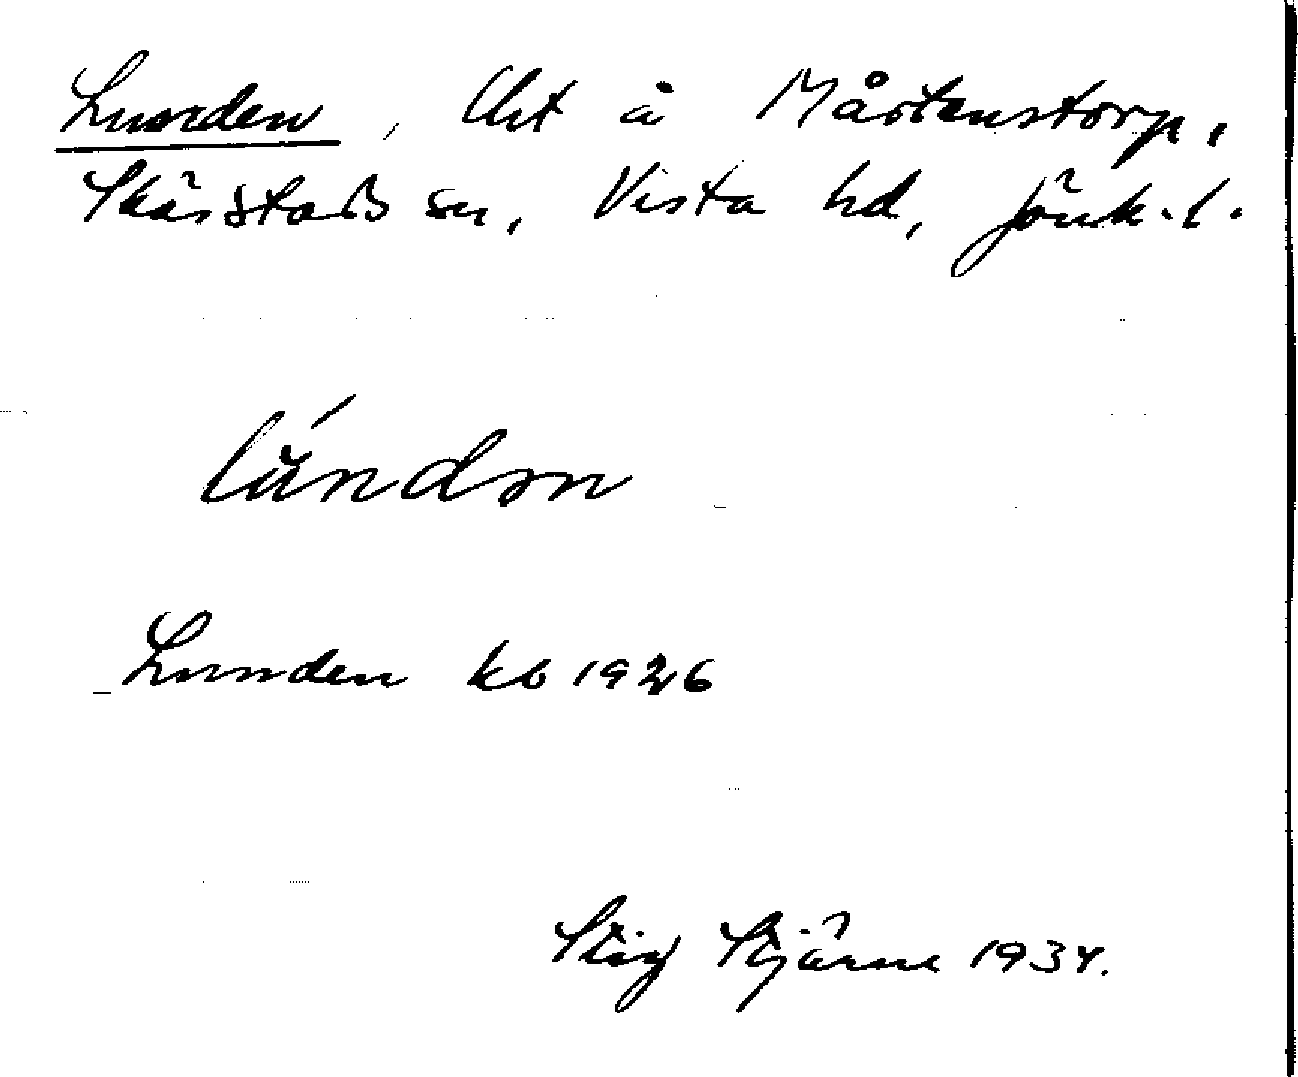 Lunden, Cht å Mårtenstorp,
Skärstads sn, Vista hd, Jönk. l.
lúndən
Lunden kb 1926
Stig Stjärne 1934.